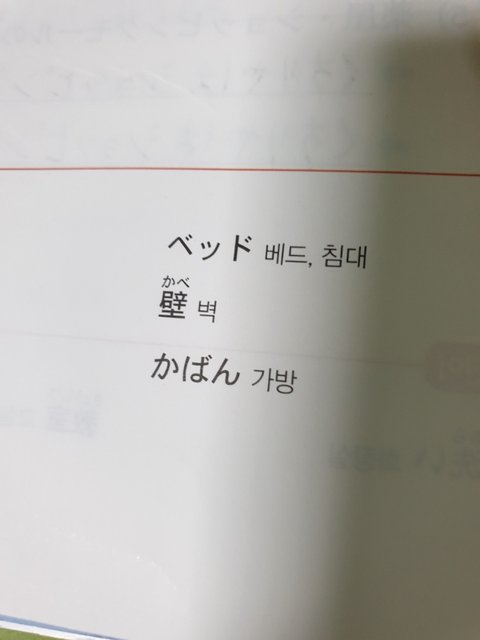 ベッド 베드, 침대
かべ
壁 벽
かばん 가방